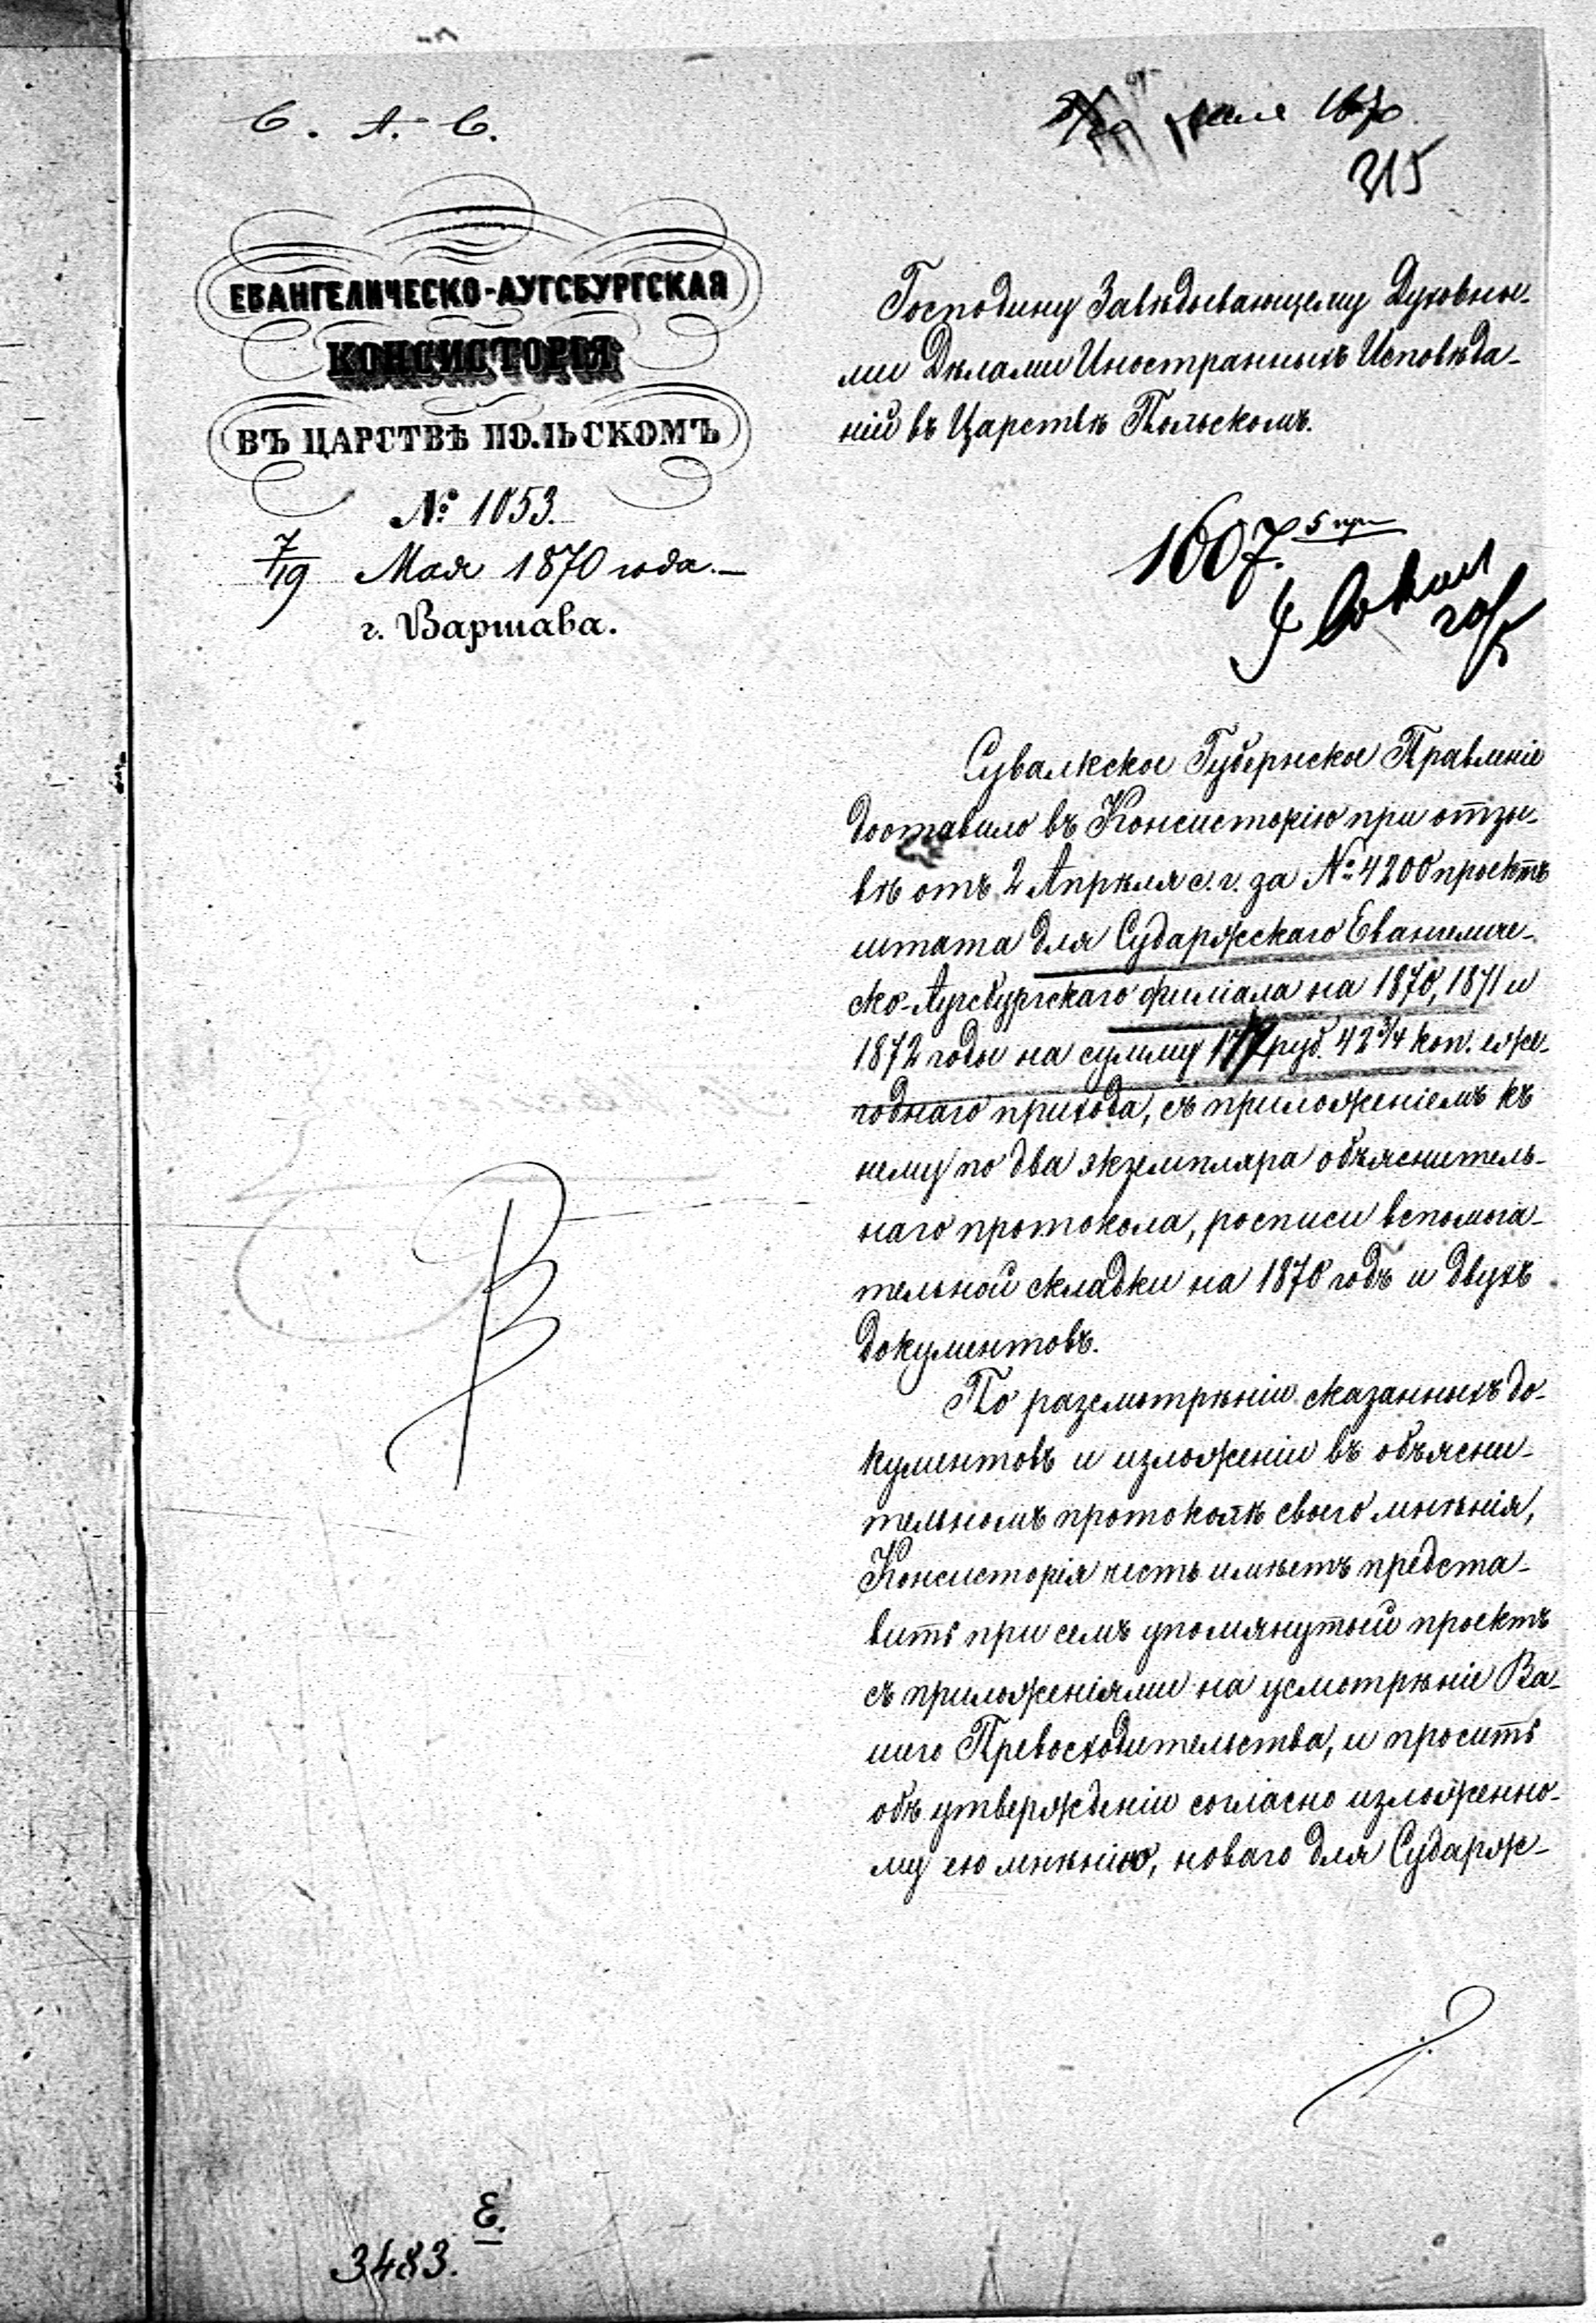 С. А. С.
мая 1870
315
ЕВАНГЕЛИЧЕСКО-АУГСБУРГСКАЯ
КОНСИСТОРІЯ
ВЪ ЦАРСТВѢ ПОЛЬСКОМЪ
№ 1053.
7/19 Мая 1870 года.—
г. Варшава.
Господину Завѣдывающему Духовны-
ми Дѣлами Иностранныхъ Исповѣда-
ній въ Царствѣ Польскомъ.
1607. 5 пр
20/5
Сувалкское Губернское Правленіе
доставило въ Консисторію при отзы-
вѣ отъ 2 Апрѣля с. г. за № 4200 проектъ
штата для Сударжскаго Евангеличе-
ско-Аугсбургскаго филіала на 1870, 1871 и
1872 годы на сумму руб. 42 3/4 коп. еже-
годнаго прихода, съ приложеніемъ къ
нему по два экземпляра объяснитель-
наго протокола, росписи вспомога-
тельной складки на 1870 годъ и двухъ
документовъ.
По разсмотрѣніи сказанныхъ до-
кументовъ и изложеніи въ объясни-
тельномъ протоколѣ своего мнѣнія,
Консисторія честь имѣетъ предста-
вить при семъ упомянутый проектъ
съ приложеніями на усмотрѣніе Ва-
шего Превосходительства, и просить
объ утвержденіи согласно изложенно-
му ею мнѣнію, новаго для Сударж-
Е.
3483.